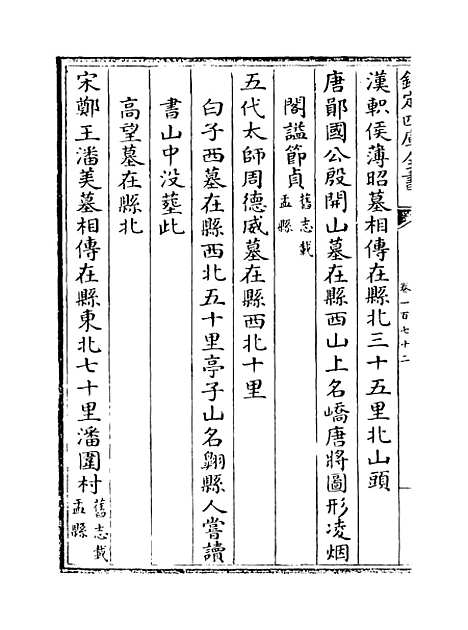 欽定四庫全書
卷一百七十二
漢軹侯薄昭墓相傳在縣北三十五里北山頭
唐鄖國公殷開山墓在縣西山上名嶠唐將圖形凌烟
閣諡節貞舊志載盂縣
五代太師周德威墓在縣西北十里
白子西墓在縣西北五十里亭子山名翺縣人嘗讀
書山中没塟此
高望墓在縣北
宋鄭王潘美墓相傳在縣東北七十里潘圍村舊志載盂縣